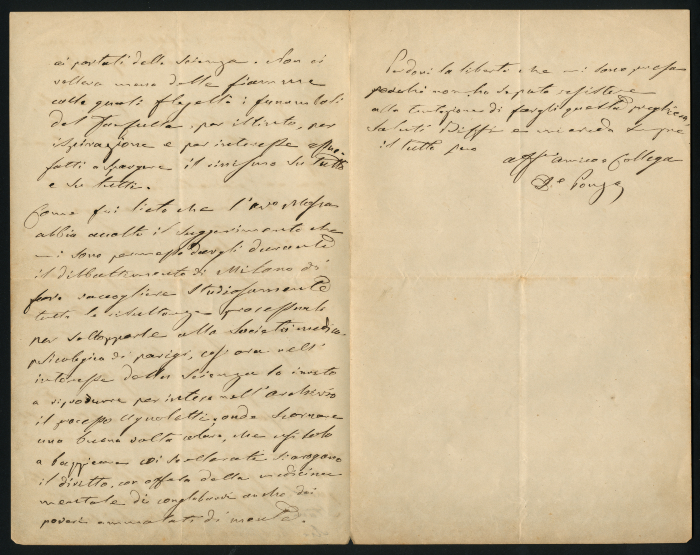 ai portati della Scienza. Non ci
vollero meno delle fiamme
colle quali flagella i funamboli
del Fanfulla, per istinto, per
ispirazione e per interesse
fatti a spargere il su tutto
e su tutti.
Come fui lieto che l'
abbia accolto il suggerimento che
mi sono permesso dargli durante
il dibattimento di Milano di
fare raccogliere studiosamente
tutte le risultanze processuali
per sottoporle alla Società medico
psicologica di parigi, così ora nell'
interesse della Scienza lo invito
a riprodurre per intero nell'Archivio
il processo Agnoletti, onde
una buona volta coloro, che
a si arrogano
il diritto, con offesa della medicina
mentale di anche dei
poveri ammalati di mente.
Perdoni la libertà che mi sono presa
perchè non ho saputo resistere
alla tentazione di fargli questa preghiera.
Saluti Biffi e mi creda sempre
il tutto suo
aff. amico e Collega
D. Ponza